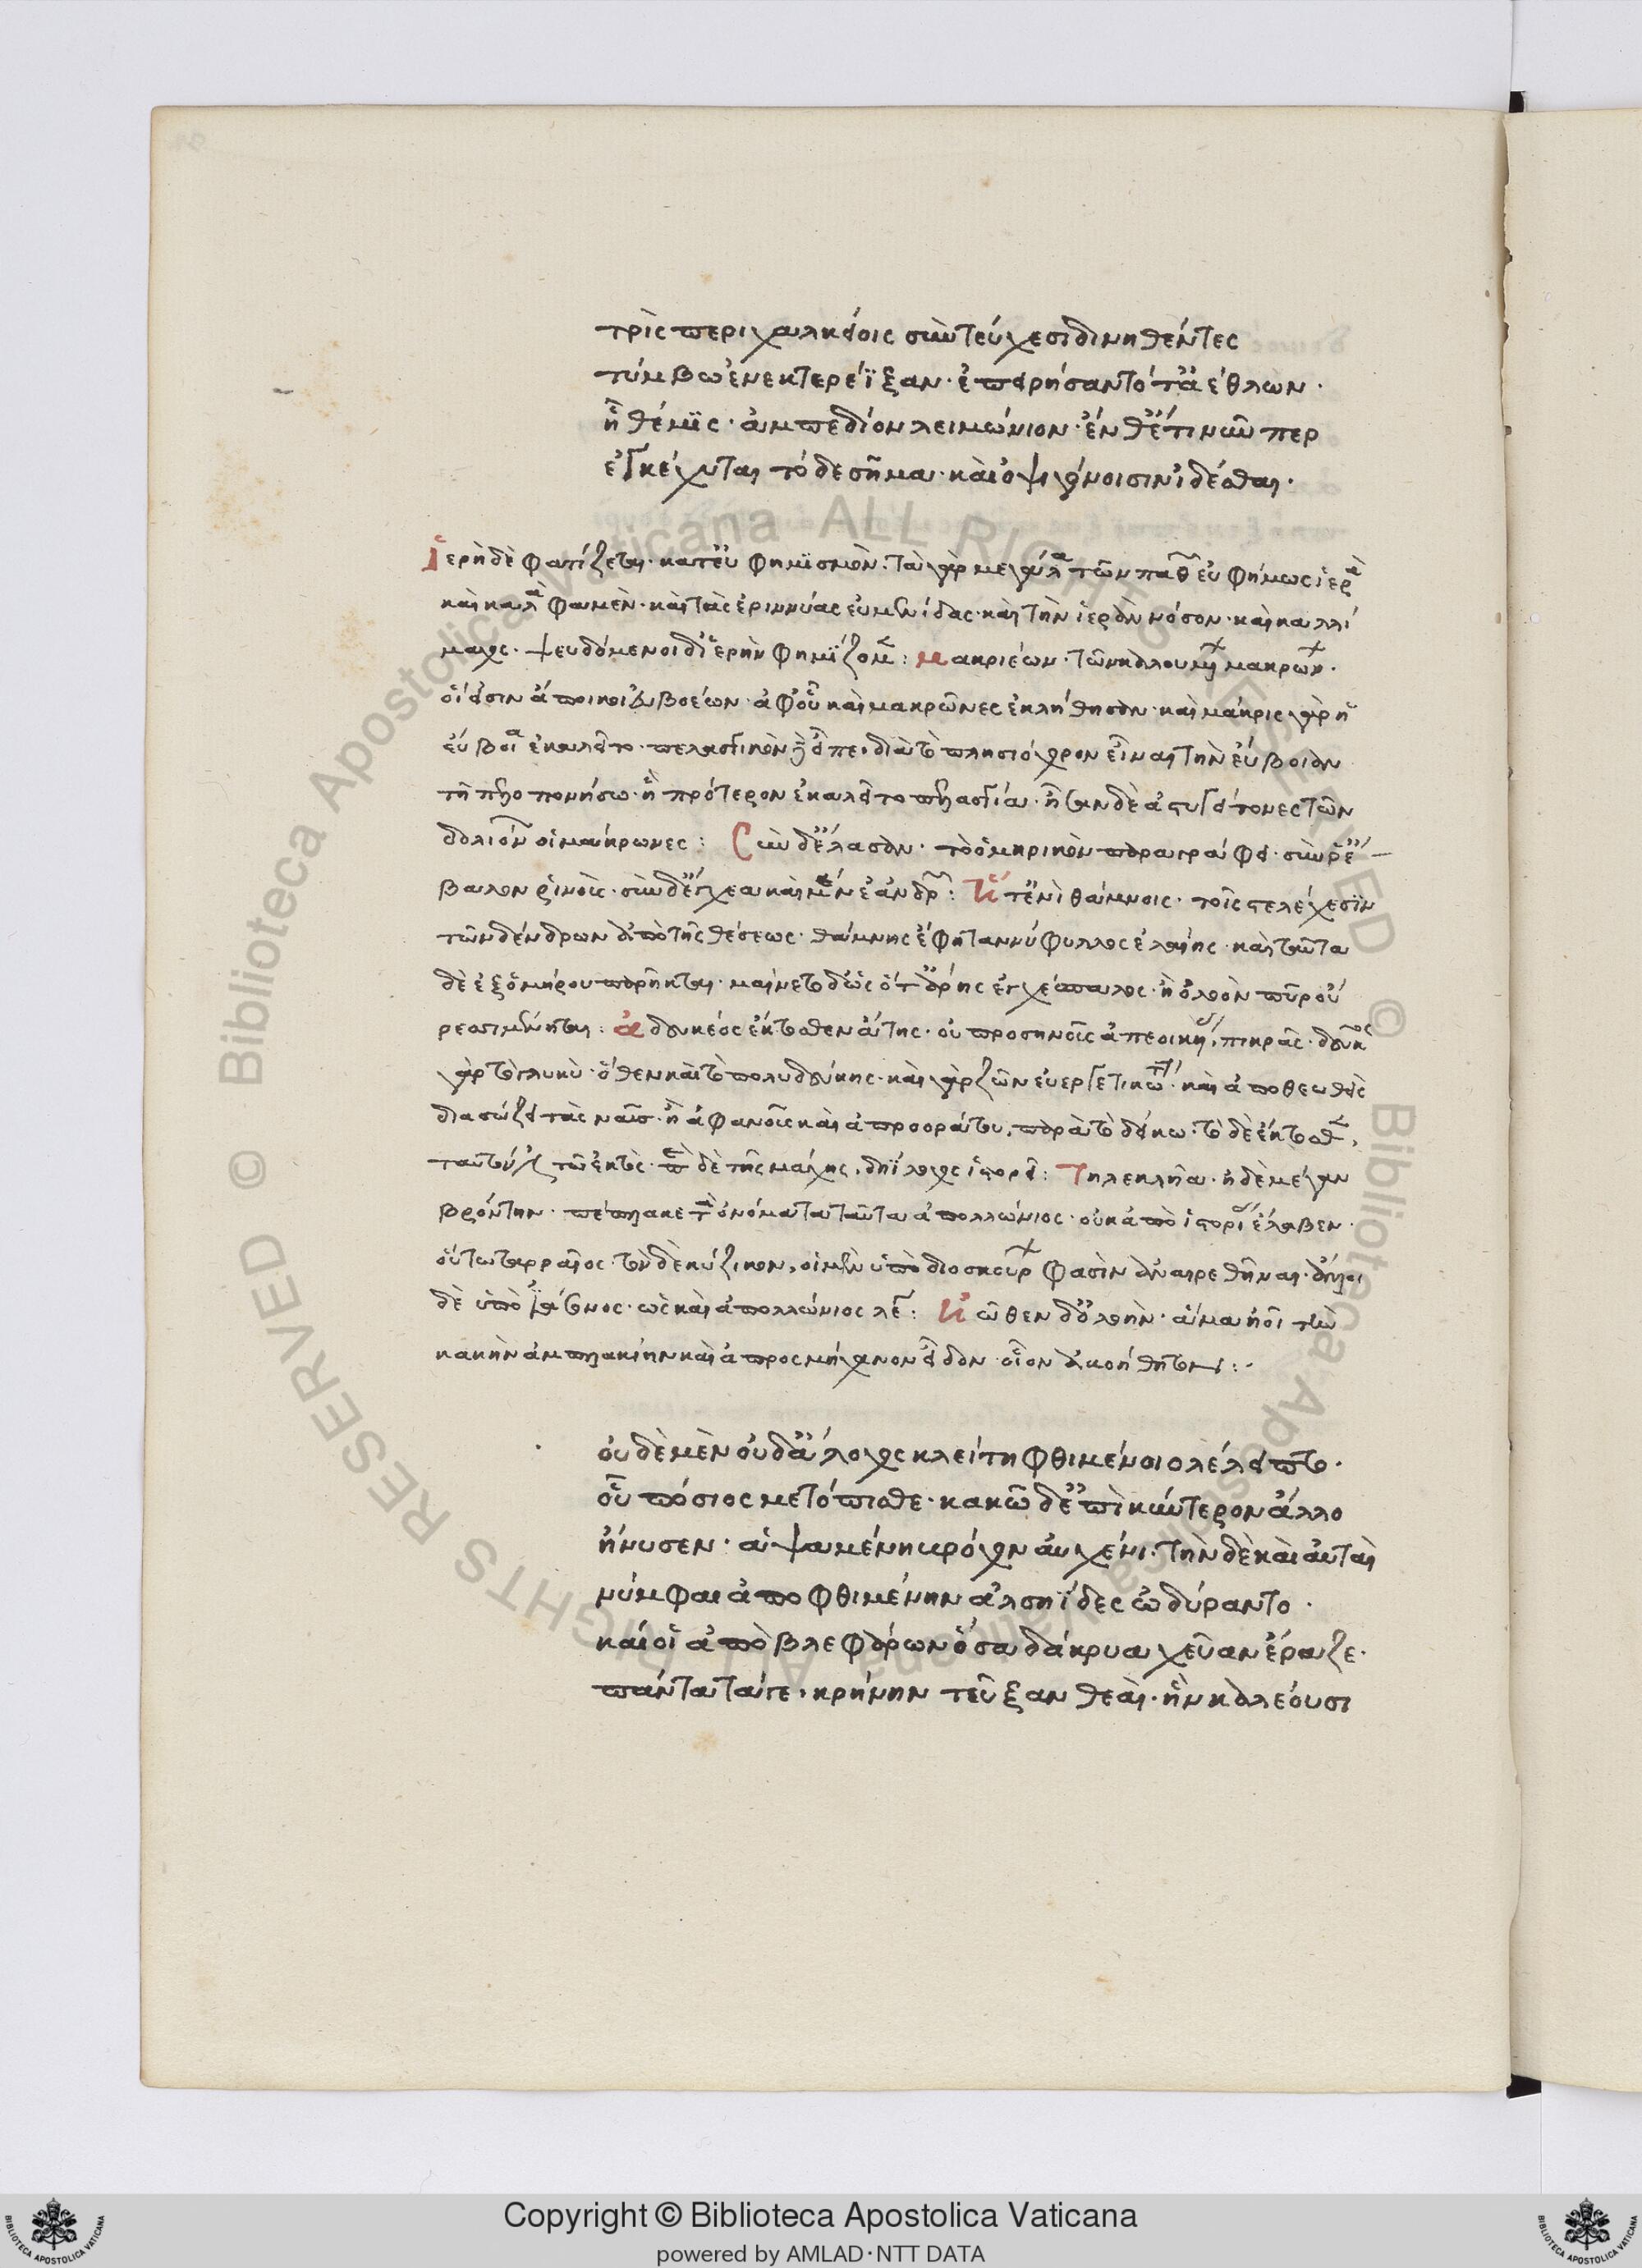 τρὶς περὶ χαλκείοις σὺν τεύχεσι δινηθέντες
τύμβω ἐνεκτερέϊξαν· ἐπειρήσαντό τ' ἀέθλων·
ἣ θέμις· ἀμπεδίον λειμώνιον· ἔνθ' ἔτι νῦν περ
ἐγκέχυται τόδε σῆμα· καὶ ὀψιγόνοισιν ἰδέσθαι·
ἱερὴ δὲ φατίζεται· κατ' εὐφημισμὸν· τὰ γὰρ μεγάλα τῶν παθῶν εὐφήμως ἱερὰ
καὶ καλὰ φαμὲν· καὶ τὰς ἐριννύας εὐμενίδας· καὶ τὴν ἱερὰν νόσον· καὶ καλλί
μαχος· ψευδόμενοι δ' ἱερὴν φημίζομεν: μακριέων· τῶν καλουμένων μακρώνων·
οἵ εἰσιν ἄποικοι εὐβοέων· ἀφ' οὗ καὶ μάκρωνες ἐκλήθησαν· καὶ μάκρις γὰρ ἡ
εὔβοια ἐκαλεῖτο· πελασγικὸν δὲ εἶπε, διὰ τὸ πλησιόχωρον εἶναι τὴν εὔβοιαν
τῆ πελοποννήσω· ἣ πρότερον ἐκαλεῖτο πελασγία· ἦσαν δὲ ἀστυγείτονες τῶν
δολιόνων οἱ μάκρωνες: Σὺν δ' ἔλασαν· τὸ ὁμηρικὸν παραγράφει· σὺν ῥ' ἔ-
βαλον ῥινοὺς· σὺν δ' ἔγχεα καὶ μένε' ἀνδρῶν: Ἥ τ' ἐνὶ θάμνοις· τοῖς στελέχεσιν
τῶν δένδρων ἀπὸ τῆς θέσεως· θάμνης ἔφη τανύφυλλος ἐλαίης· καὶ ταῦτα
δὲ ἐξ ὁμήρου παρῆκται· μαίνετο δ' ὡς ὅτ' ἄρης ἐγχέσπαλος· ἢ ὀλοὸν πῦρ οὔ
ρεσι μαίνηται: ἀδευκέος ἔκτοθεν ἄτης· οὐ προσηνοῦς ἀπεοικυίας, πικρᾶς· δεῦκος
γὰρ τὸ γλυκὺ· ὅθεν καὶ τὸ πολυδεύκης· καὶ γὰρ ζῶν εὐεργετικώτατος· καὶ ἀποθεωθεὶς
διασώζει τὰς ναῦς· ἢ ἀφανοῦς καὶ ἀπροοράτου, παρὰ τὸ δεύκω· τὸ δὲ ἔκτοθεν,
ταυτόν τῶ ἐκτὸς· περὶ δὲ τῆς μάχης, δηΐλοχος ἱστορεῖ: Τηλεκλῆα· ἠδὲ μεγαν
βρόντην· πέπλακε τὰ ὀνόματα ταῦτα ἀπολλώνιος· οὐκ ἀπὸ ἱστορίας ἔλαβεν·
οὕτω ταρραῖος· τὸν δὲ κύζικον, οἱ μὲν ὑπὸ διοσκούρων φασὶν ἀναιρεθῆναι· ἄλλοι
δὲ ὑπὸ ἰάσονος· ὡς καὶ ἀπολλώνιος λέγει: Ἠῶθεν δ' ὀλοὴν· ἅμα ἠοῖ τὴν
κακὴν ἀμπλακίην καὶ ἀπροσμήχανον εἶδον· οἷον ἀκοήθηται:
οὐδὲ μὲν οὐδ' ἄλοχος κλείτη φθιμένοιο λέλειπτο·
οὗ πόσιος μετόπισθε· κακῶ δ' ἔπι κύντερον ἄλλο
ἤνυσεν· ἁψαμένη βρόχον αὐχένι· τὴν δὲ καὶ αὐταὶ
νύμφαι ἀποφθιμένην ἀλσηΐδες ὠδύραντο·
καί οἱ ἀπὸ βλεφάρων ὅσα δάκρυα χεῦαν ἔραζε·
πάντα τάγε, κρήνην τεῦξαν θεαὶ· ἣν καλέουσι
Copyright © Biblioteca Apostolica Vaticana
powered by AMLAD·NTT DATA